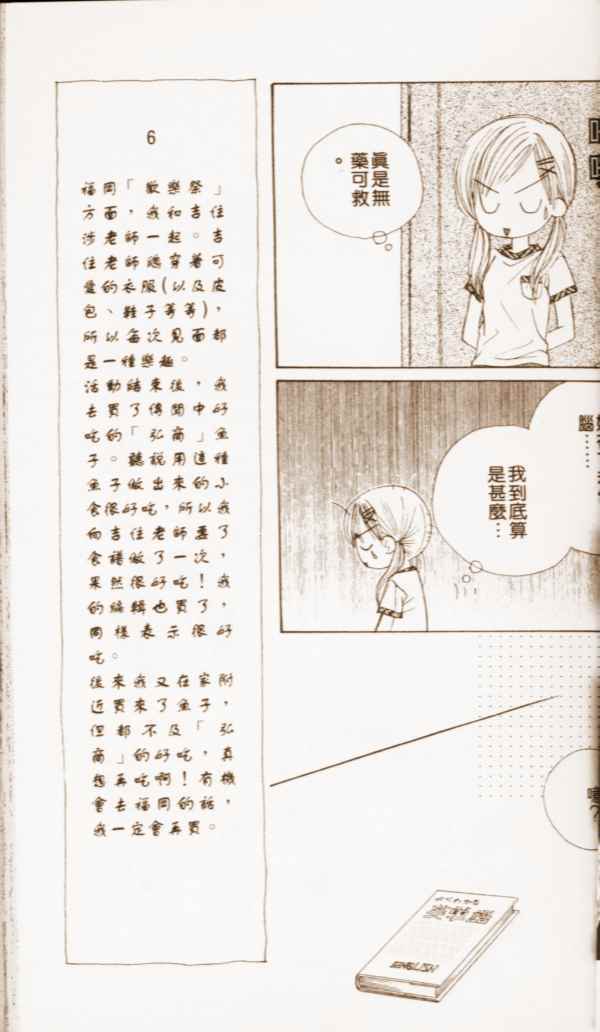 6
福岡「歡樂祭」
方面，我和吉住
涉老師一起。吉
住老師總穿着可
愛的衣服(以及皮
包、鞋子等等)，
所以每次見面都
是一種樂趣。
活動結束後，我
去買了傳聞中好
吃的「弘商」魚
子。聽說用這種
魚子做出來的小
食很好吃，所以我
向吉住老師要了
食譜做了一次，
果然很好吃！我
的編輯也買了，
同樣表示很好
吃。
後來我又在家附
近買來了魚子，
但都不及「弘
商」的好吃，真
想再吃啊！有機
會去福岡的話，
我一定會再買。
眞是無
藥可救
。
腦……
我到底算
是甚麼…
ENGLISH